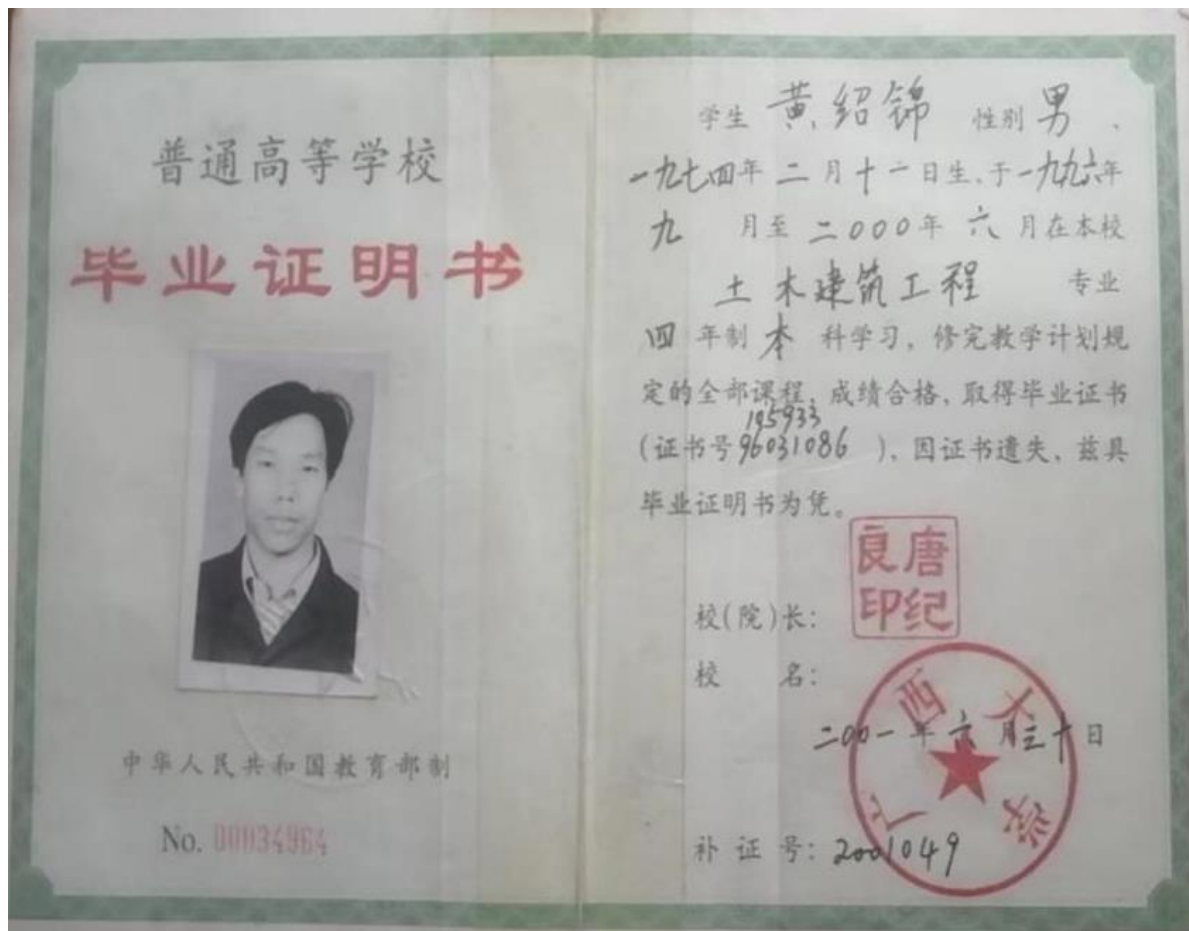 普通高等学校
毕业证明书
中华人民共和国教育部制
No. 00034964
学生 黄绍锦 性别 男、
一九七四年二月十一日生、于一九九六年
九 月至 二000年 六 月在本校
土木建筑工程 专业
四 年制 本 科学习，修完教学计划规
定的全部课程，成绩合格，取得毕业证书
195933
(证书号96031086 )，因证书遗失，兹具
毕业证明书为凭。
校(院)长：
唐纪良印
校 名：
广西大学
二00一年六月三十日
补 证 号：2001049